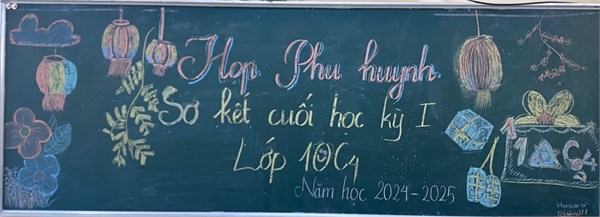 Họp Phụ huynh
Sơ kết cuối học kỳ I
Lớp 10C4
Năm học 2024-2025
10C4